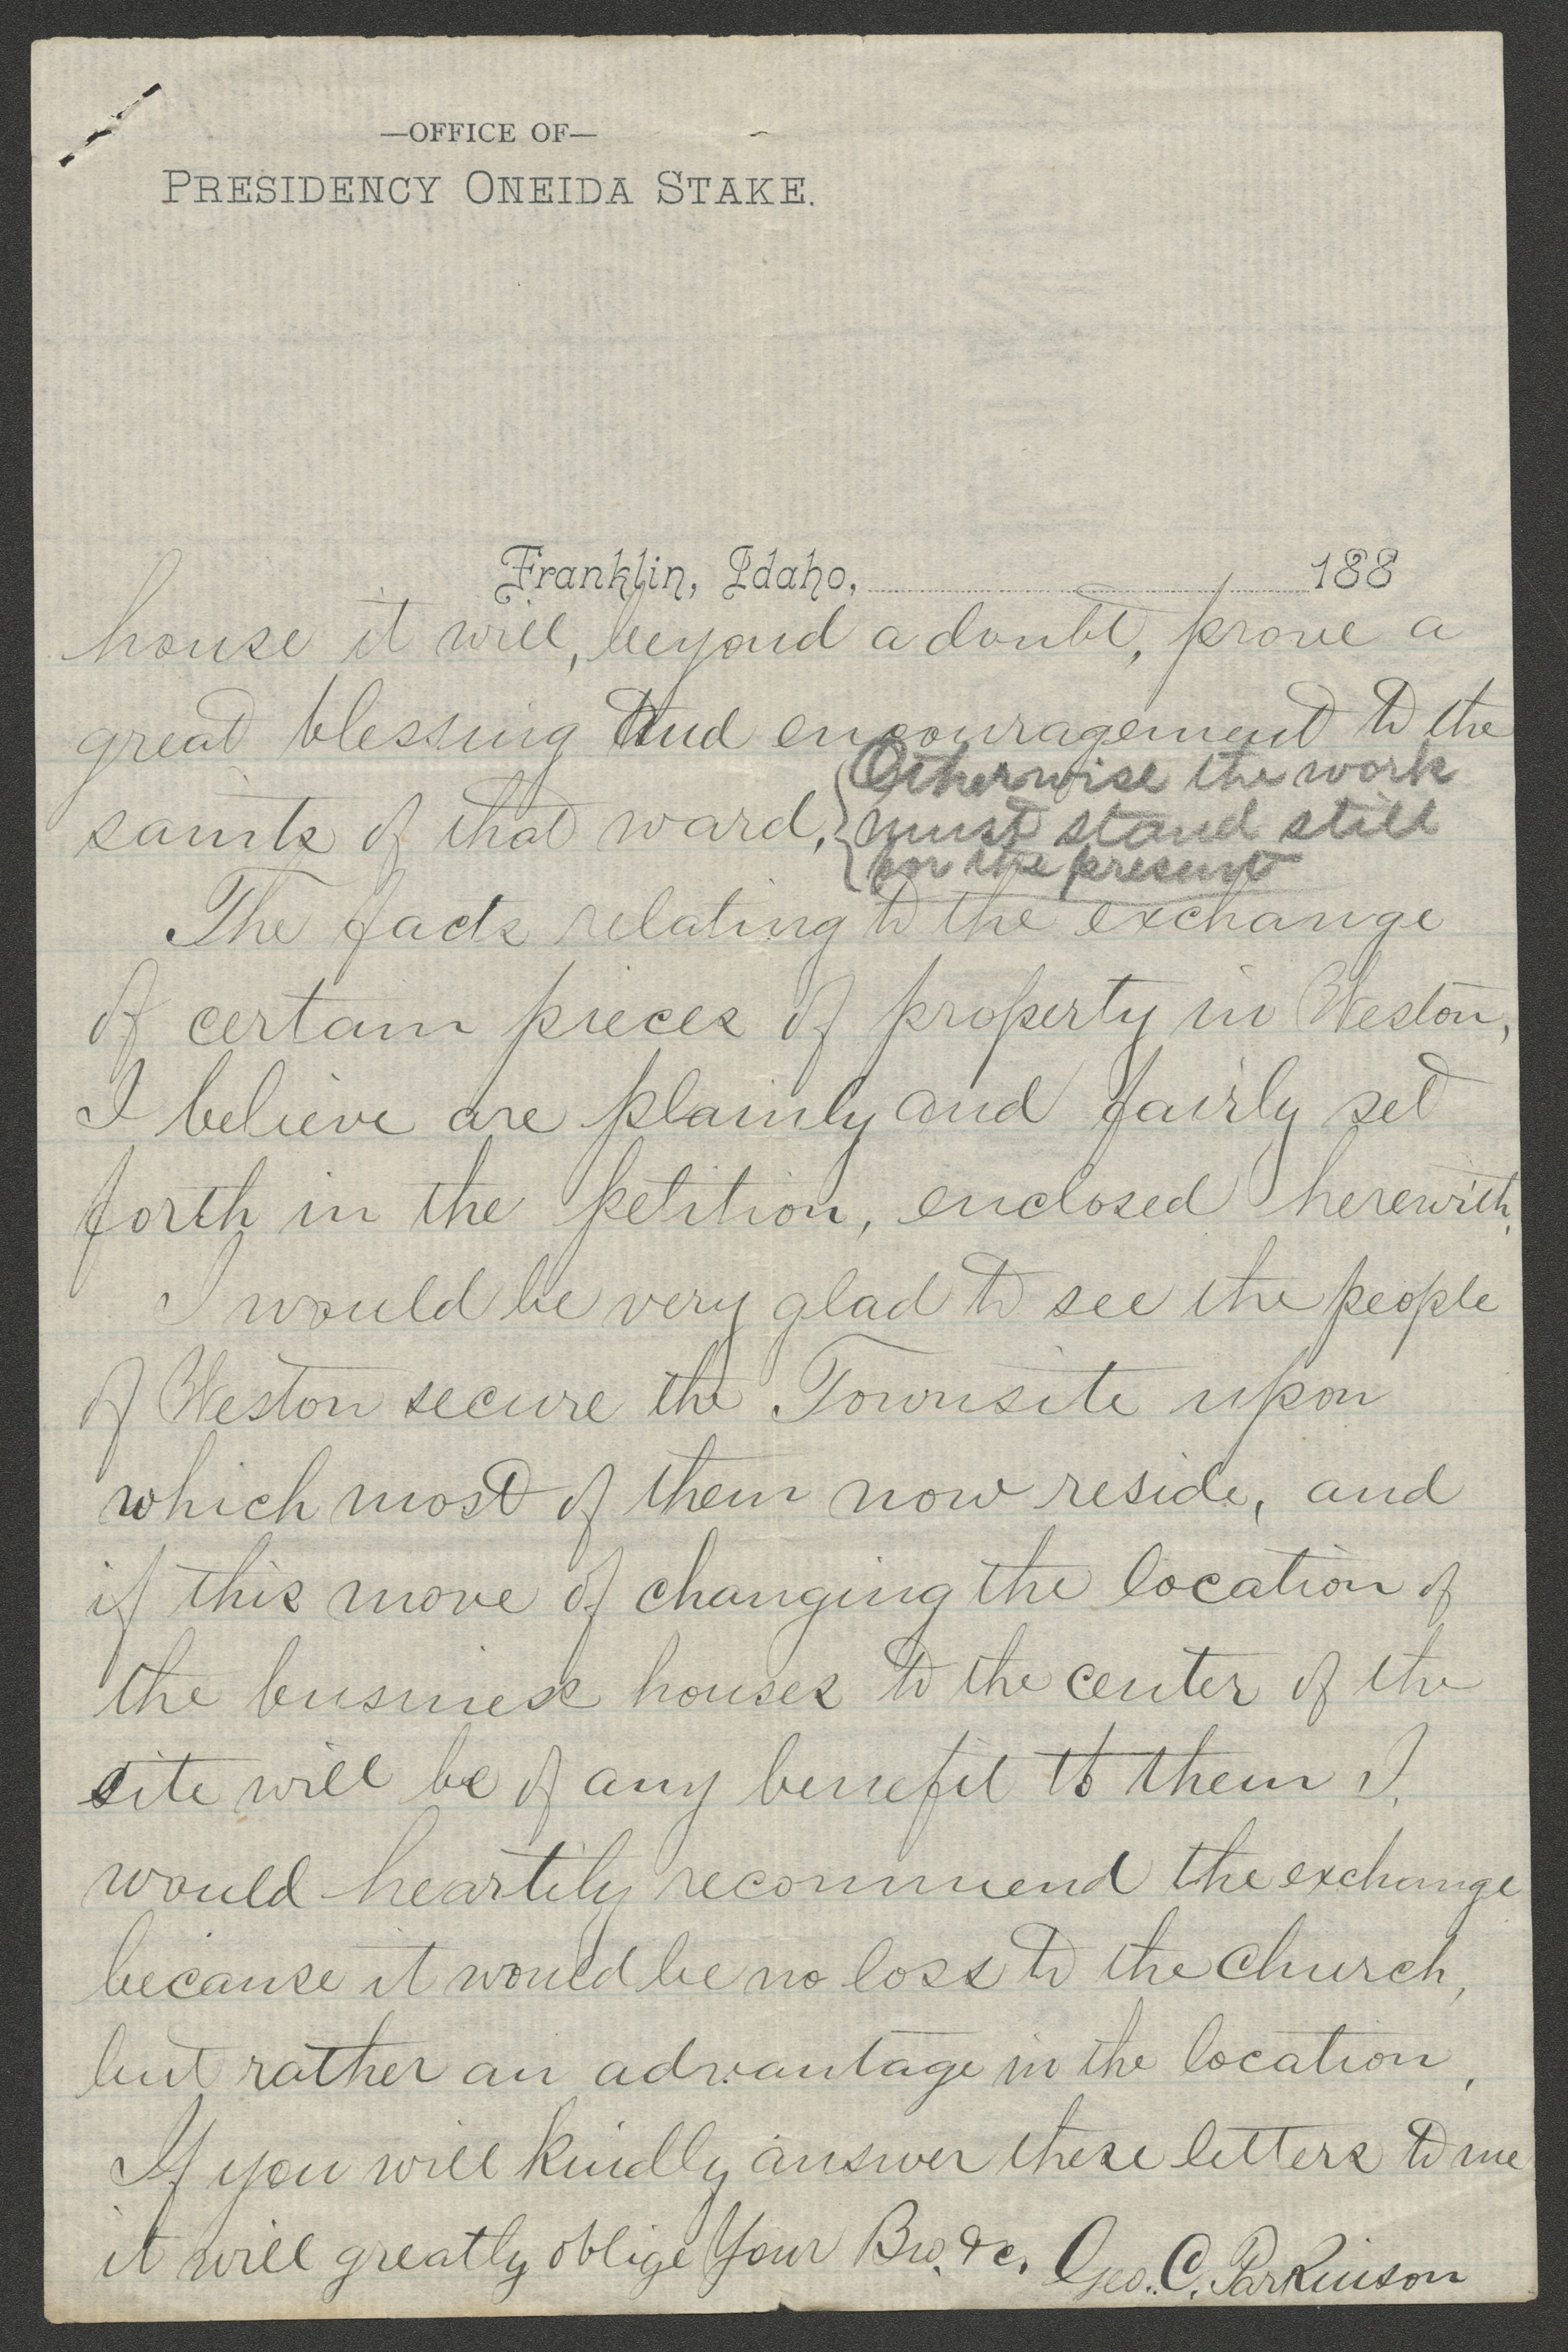 —OFFICE OF—
PRESIDENCY ONEIDA STAKE.
Franklin, Idaho, 188
house it will, beyond a doubt, prove a
great blessing and encouragement to the
saints of that ward, { Otherwise the work
must stand still
for the present
The facts relating to the exchange
of certain pieces of property in Weston,
I believe are plainly and fairly set
forth in the petition, enclosed herewith.
I would be very glad to see the people
of Weston secure the Townsite upon
which most of them now reside, and
if this move of changing the location of
the business houses to the center of the
site will be of any benefit to them I
would heartily recommend the exchange
because it would be no loss to the church,
but rather an advantage in the location,
If you will kindly answer these letters to me
it will greatly oblige Your Bro. &c. Geo. C. Parkinson